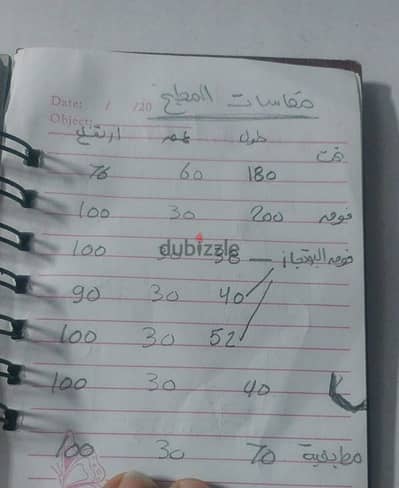 مقاسات المطبخ
Date: / /20
Object:
طول عمق ارتفاع
تحت
180 60 76
فوقه 200 30 100
فوقه البوتجاز 38 30 100
dubizzle
40 30 90
52 30 100
40 30 100
مطبقية 70 30 100